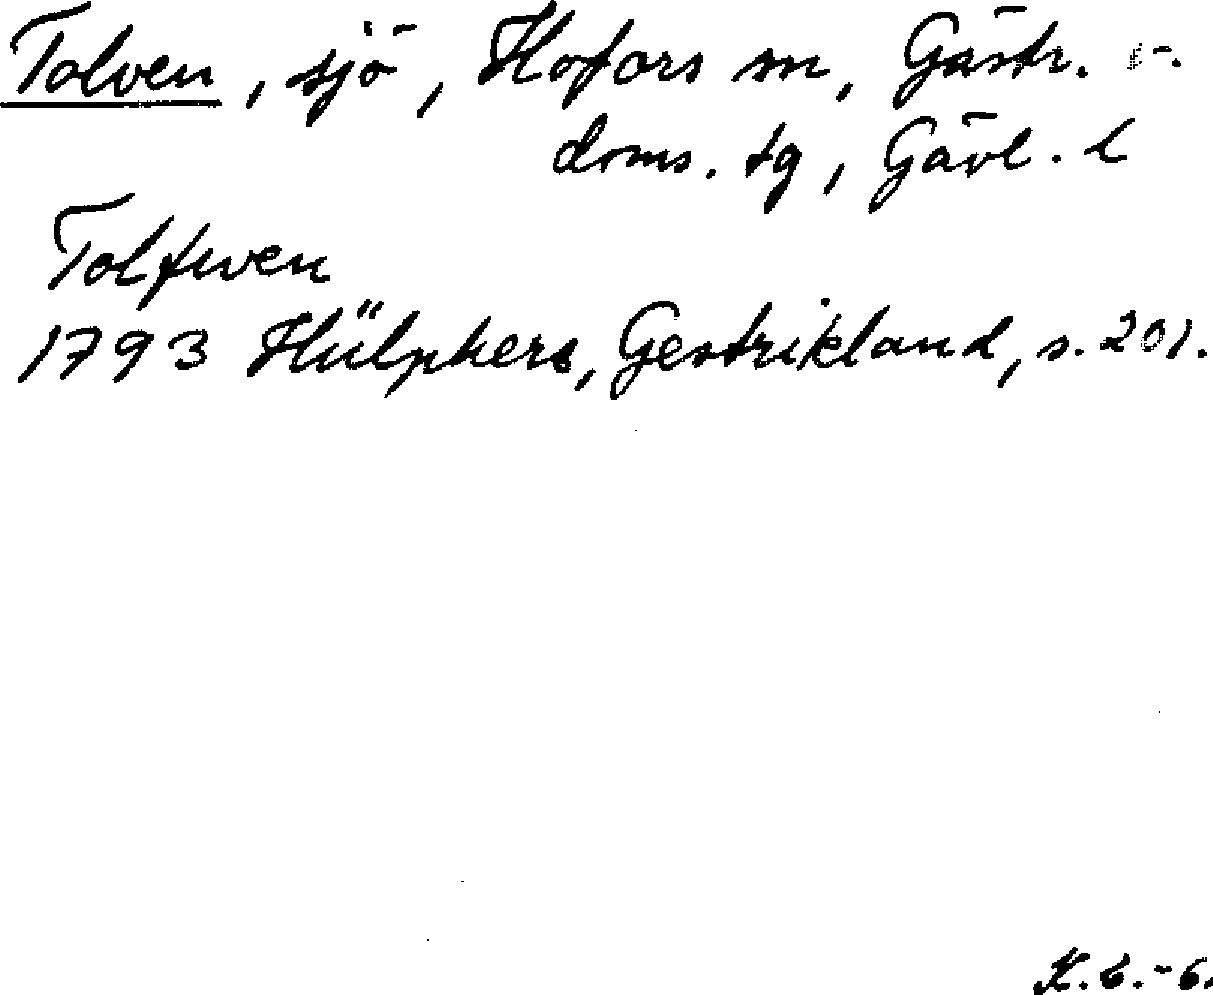 Tolven, sjö, Hofors sn, Gästr.
doms. tg, Gävl. l
Tolfwen
1793 Hülphers, Gestrikland, s. 201.